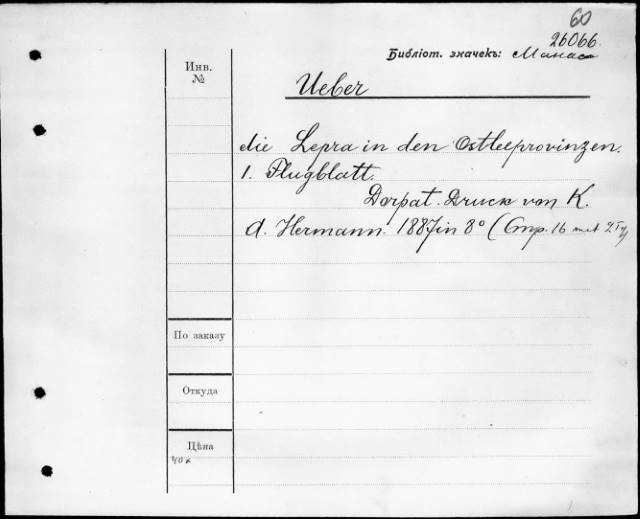 60
26066.
Библіот. значекъ:
Инв.
№
Ueber
die Lepra in den Ostseeprovinzen.
1. Flugblatt.
Dorpat. Druck von K.
A. Hermann. 1887 in 8° (Стр. 16 mit 2
По заказу
Откуда
Цѣна
40к